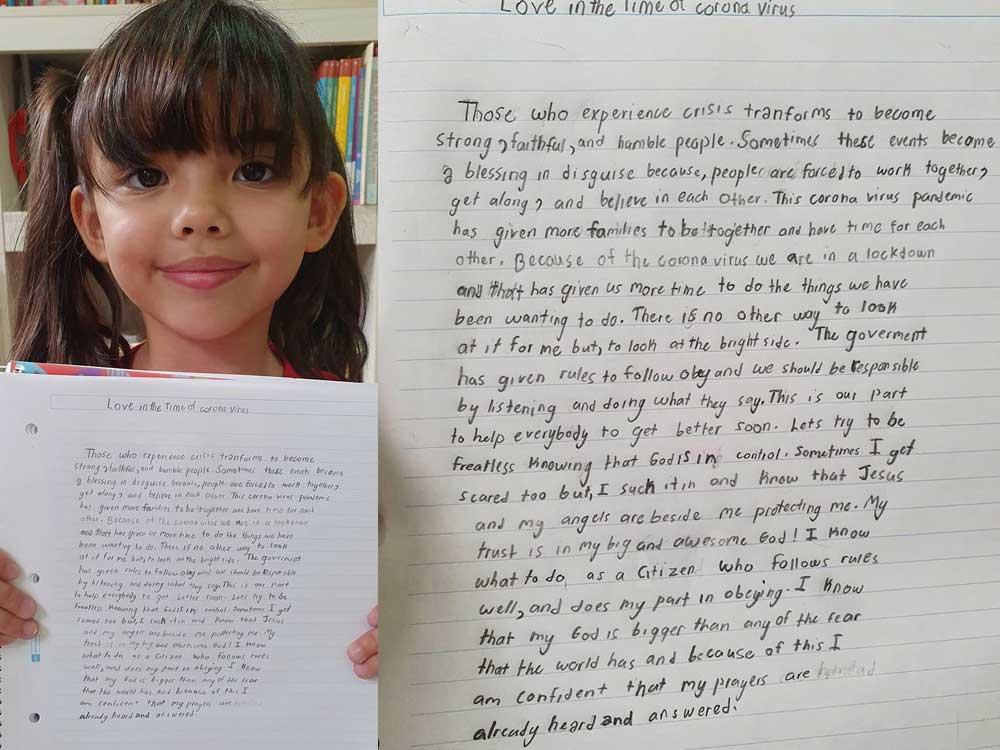 Love in the Time of corona virus
Those who experience crisis tranforms to become
strong, faithful, and humble people. Sometimes these events become
a blessing in disguise because, people are forced to work together,
get along, and believe in each other. This corona virus pandemic
has given more families to be together and have time for each
other. Because of the corona virus we are in a lockdown
and that has given us more time to do the things we have
been wanting to do. There is no other way to look
at it for me but, to look at the bright side. The goverment
has given rules to follow obey and we should be responsible
by listening and doing what they say. This is our part
to help everybody to get better soon. Lets try to be
freatless knowing that God is in control. Sometimes I get
scared too but, I suck it in and know that Jesus
and my angels are beside me protecting me. My
trust is in my big and awesome God! I know
what to do as a citizen who follows rules
well, and does my part in obeying. I know
that my God is bigger than any of the fear
that the world has and because of this I
am confident that my prayers are
already heard and answered.
Love in the Time of corona virus
Those who experience crisis tranforms to become
strong, faithful, and humble people. Sometimes these events become
a blessing in disguise because, people are forced to work together,
get along, and believe in each other. This corona virus pandemic
has given more families to be together and have time for each
other. Because of the corona virus we are in a lockdown
and that has given us more time to do the things we have
been wanting to do. There is no other way to look
at it for me but, to look at the bright side. The goverment
has given rules to follow obey and we should be responsible
by listening and doing what they say. This is our part
to help everybody to get better soon. Lets try to be
freatless knowing that God is in control. Sometimes I get
scared too but, I suck it in and know that Jesus
and my angels are beside me protecting me. My
trust is in my big and awesome God! I know
what to do as a citizen who follows rules
well, and does my part in obeying. I know
that my God is bigger than any of the fear
that the world has and because of this I
am confident that my prayers are
already heard and answered.